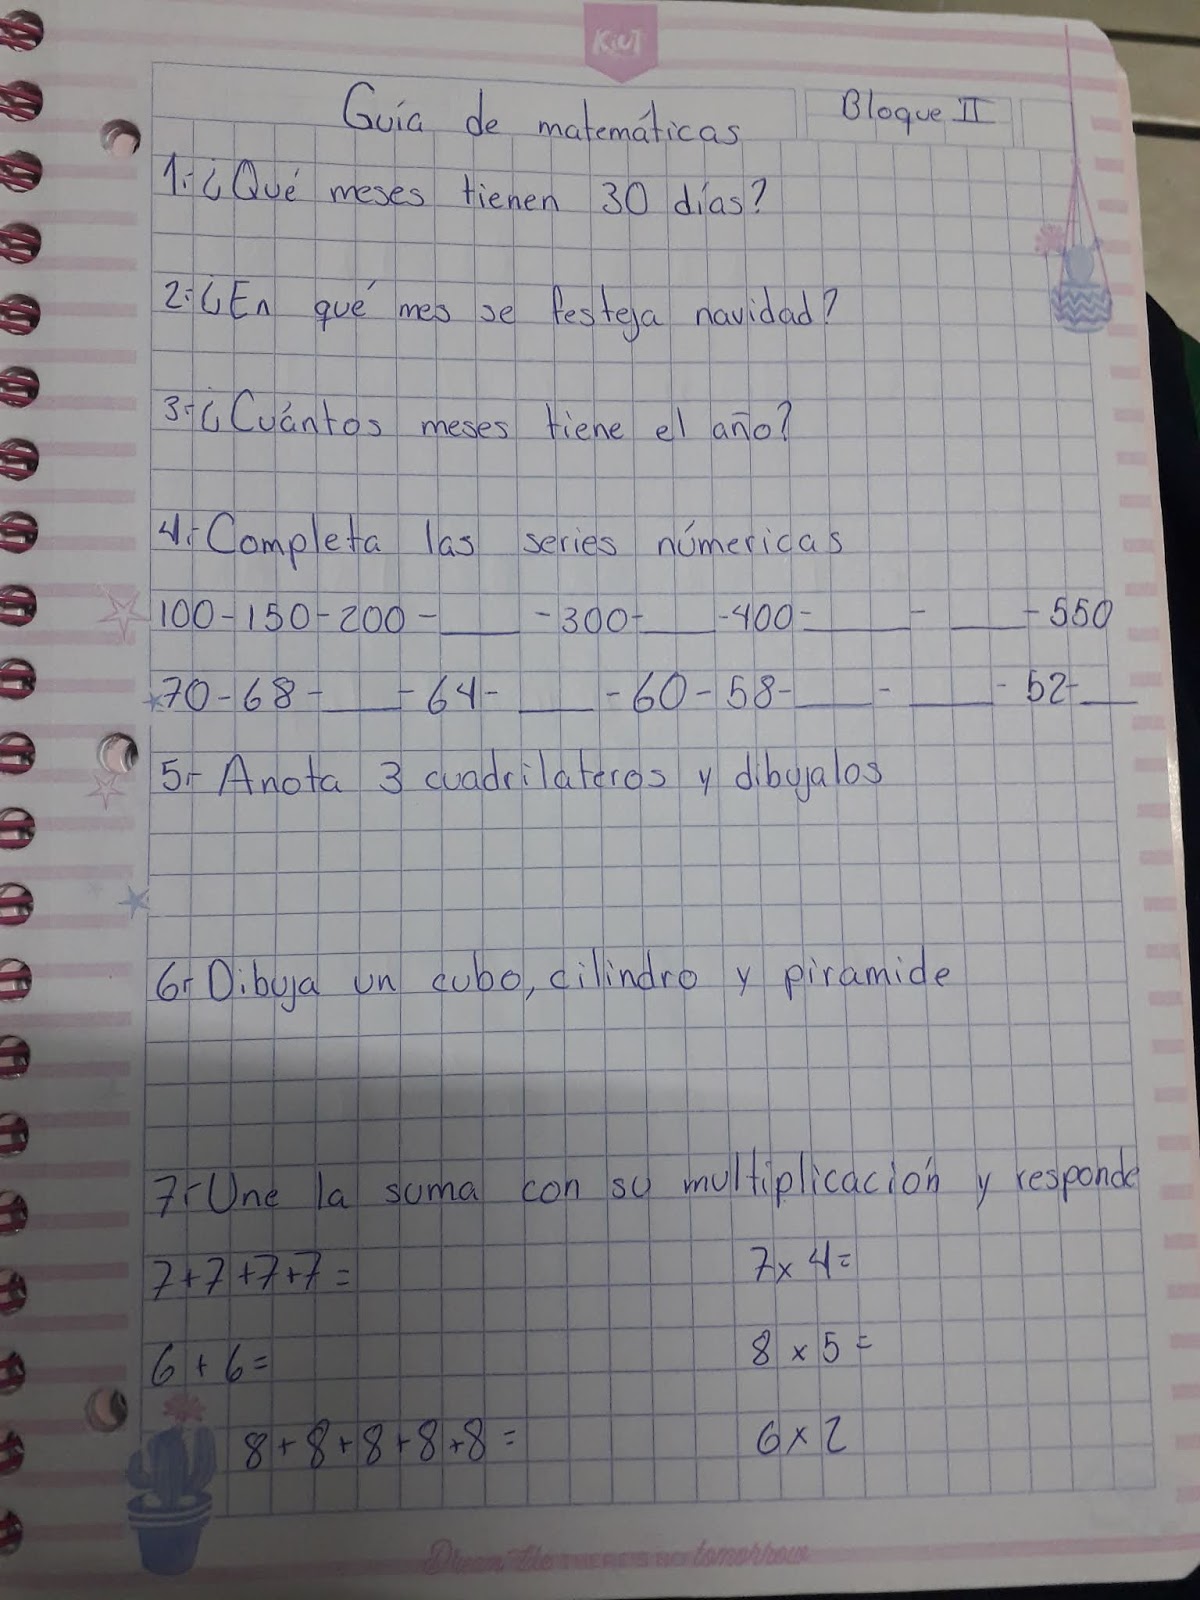 KiUT
Guía de matemáticas
Bloque II
1.-¿Qué meses tienen 30 días?
2.-¿En qué mes se festeja navidad?
3.-¿Cuántos meses tiene el año?
4.-Completa las series númericas
100-150-200-____-300-____-400-____-____-550
70-68-____-64-____-60-58-____-____-52-____
5.- Anota 3 cuadrilateros y dibujalos
6.-Dibuja un cubo, cilindro y piramide
7.-Une la suma con su multiplicación y responde
7+7+7+7= 7x4=
6+6= 8x5=
8+8+8+8+8= 6x2
THERE'S NO tomorrow